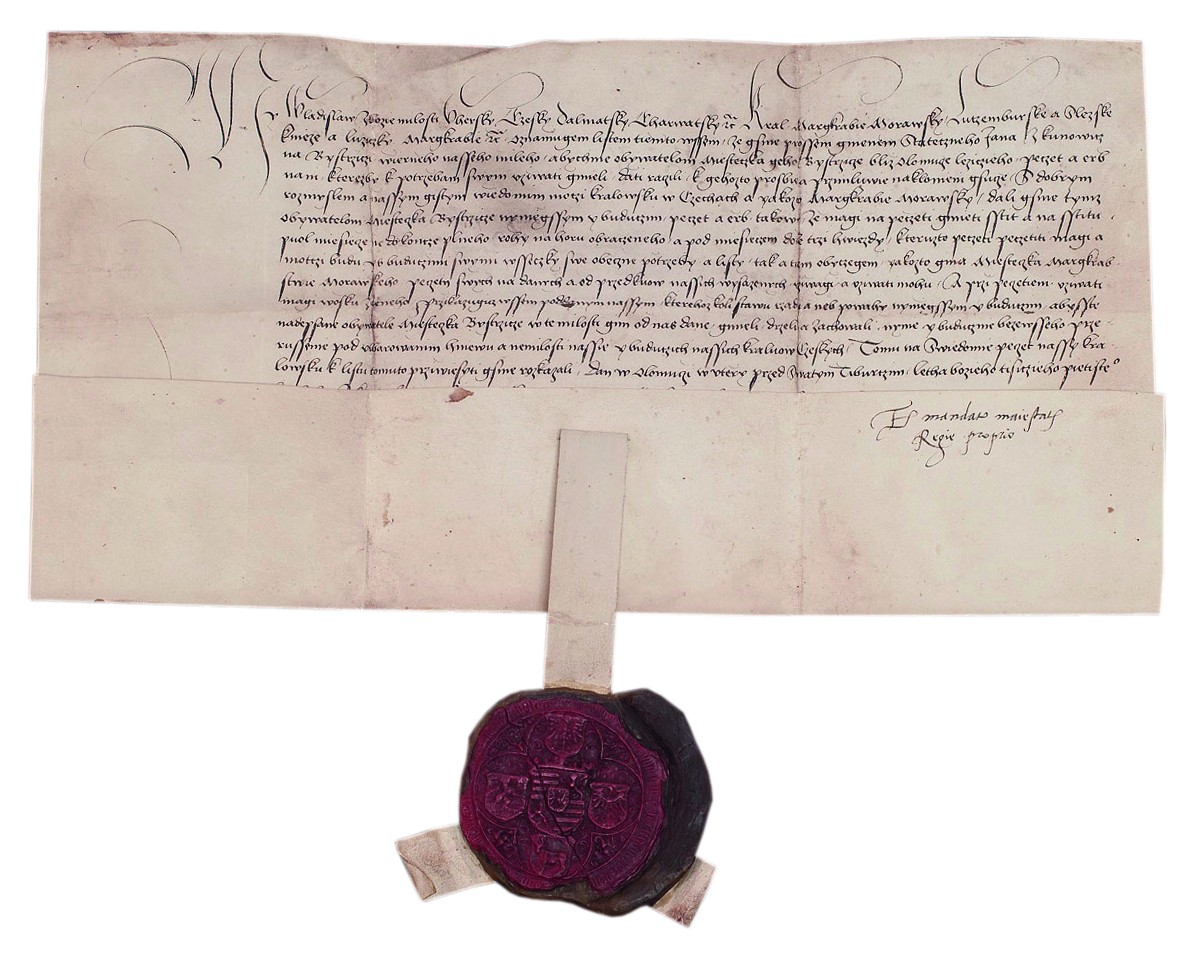 My Wladislaw zbozie milosti Vhersky, Czesky, Dalmatsky, Charwatsky, ꝛc̃ Kral Margkrabie Morawsky, Luczemburske a Slezske
knieze a luziczky Margkrabie ꝛc̃ Oznamugem listem tiemto wssem, ze gsme prosseni gmenem Stateczneho Jana z kunowicz
na Bystrziczi wierneho nasseho mileho, abychme obywatelom Miesteczka geho Bystrzicze bliz Olomucze leziczieho, peczet a erb
nam, kterezby k potrzebam swym vziwati gmieli, dati raczili, k gehozto prosbie a przimluwie naklonieni gsucze, S dobrym
rozmyslem a nassym gistym wiedomim moczi kralowsku w Czechach a yakozo Margkrabie Morawsky, dali gsme tymz
obywatelom Miesteczka Bystrzicze nyniegssym y buduczim, peczet a erb takowy, ze magi na peczeti gmieti sstit a na sstitu
puol miesicze do koncze plneho rohy na horu obraczeneho, a pod miesiczem dole trzi hwiezdy, kteruzto peczeti peczetiti magi a
moczi budu y s buduczimi swymi wssiczky swe obeczne potrzeby, a listy, tak a tem obyczegem, yakozto gina Miesteczka Margkrab-
stwie Morawskeho peczeti swych na danych a od przedkuow nassich wysazenych vziwagi a vziwati mohu, A przi peczetieni vziwati
magi wosku zeleneho, Przikazugicz wssem poddanym nassym kterehoz koli stawu rzadu a neb powahy nyniegssym y buduczim, abysste
nadepsane obywatele Miesteczka Bystrzicze w te milosti gim od nas dane, gmieli, drzeli a zachowali, nynie y buduczne bezewsseho prze-
russenie pod vwarowanim hniewu a nemilosti nassie y buduczich nassich kraluow Czeskych, Tomu na Swiedomie peczet nassy kra-
lowsku k listu tomuto przywiesyti gsme rozkazali, Dan w Olomuczi w vtery przed Swatym Tiburczim, letha bozieho tisiczieho pietisteº
Ex mandato maiestatis
Regie proprio